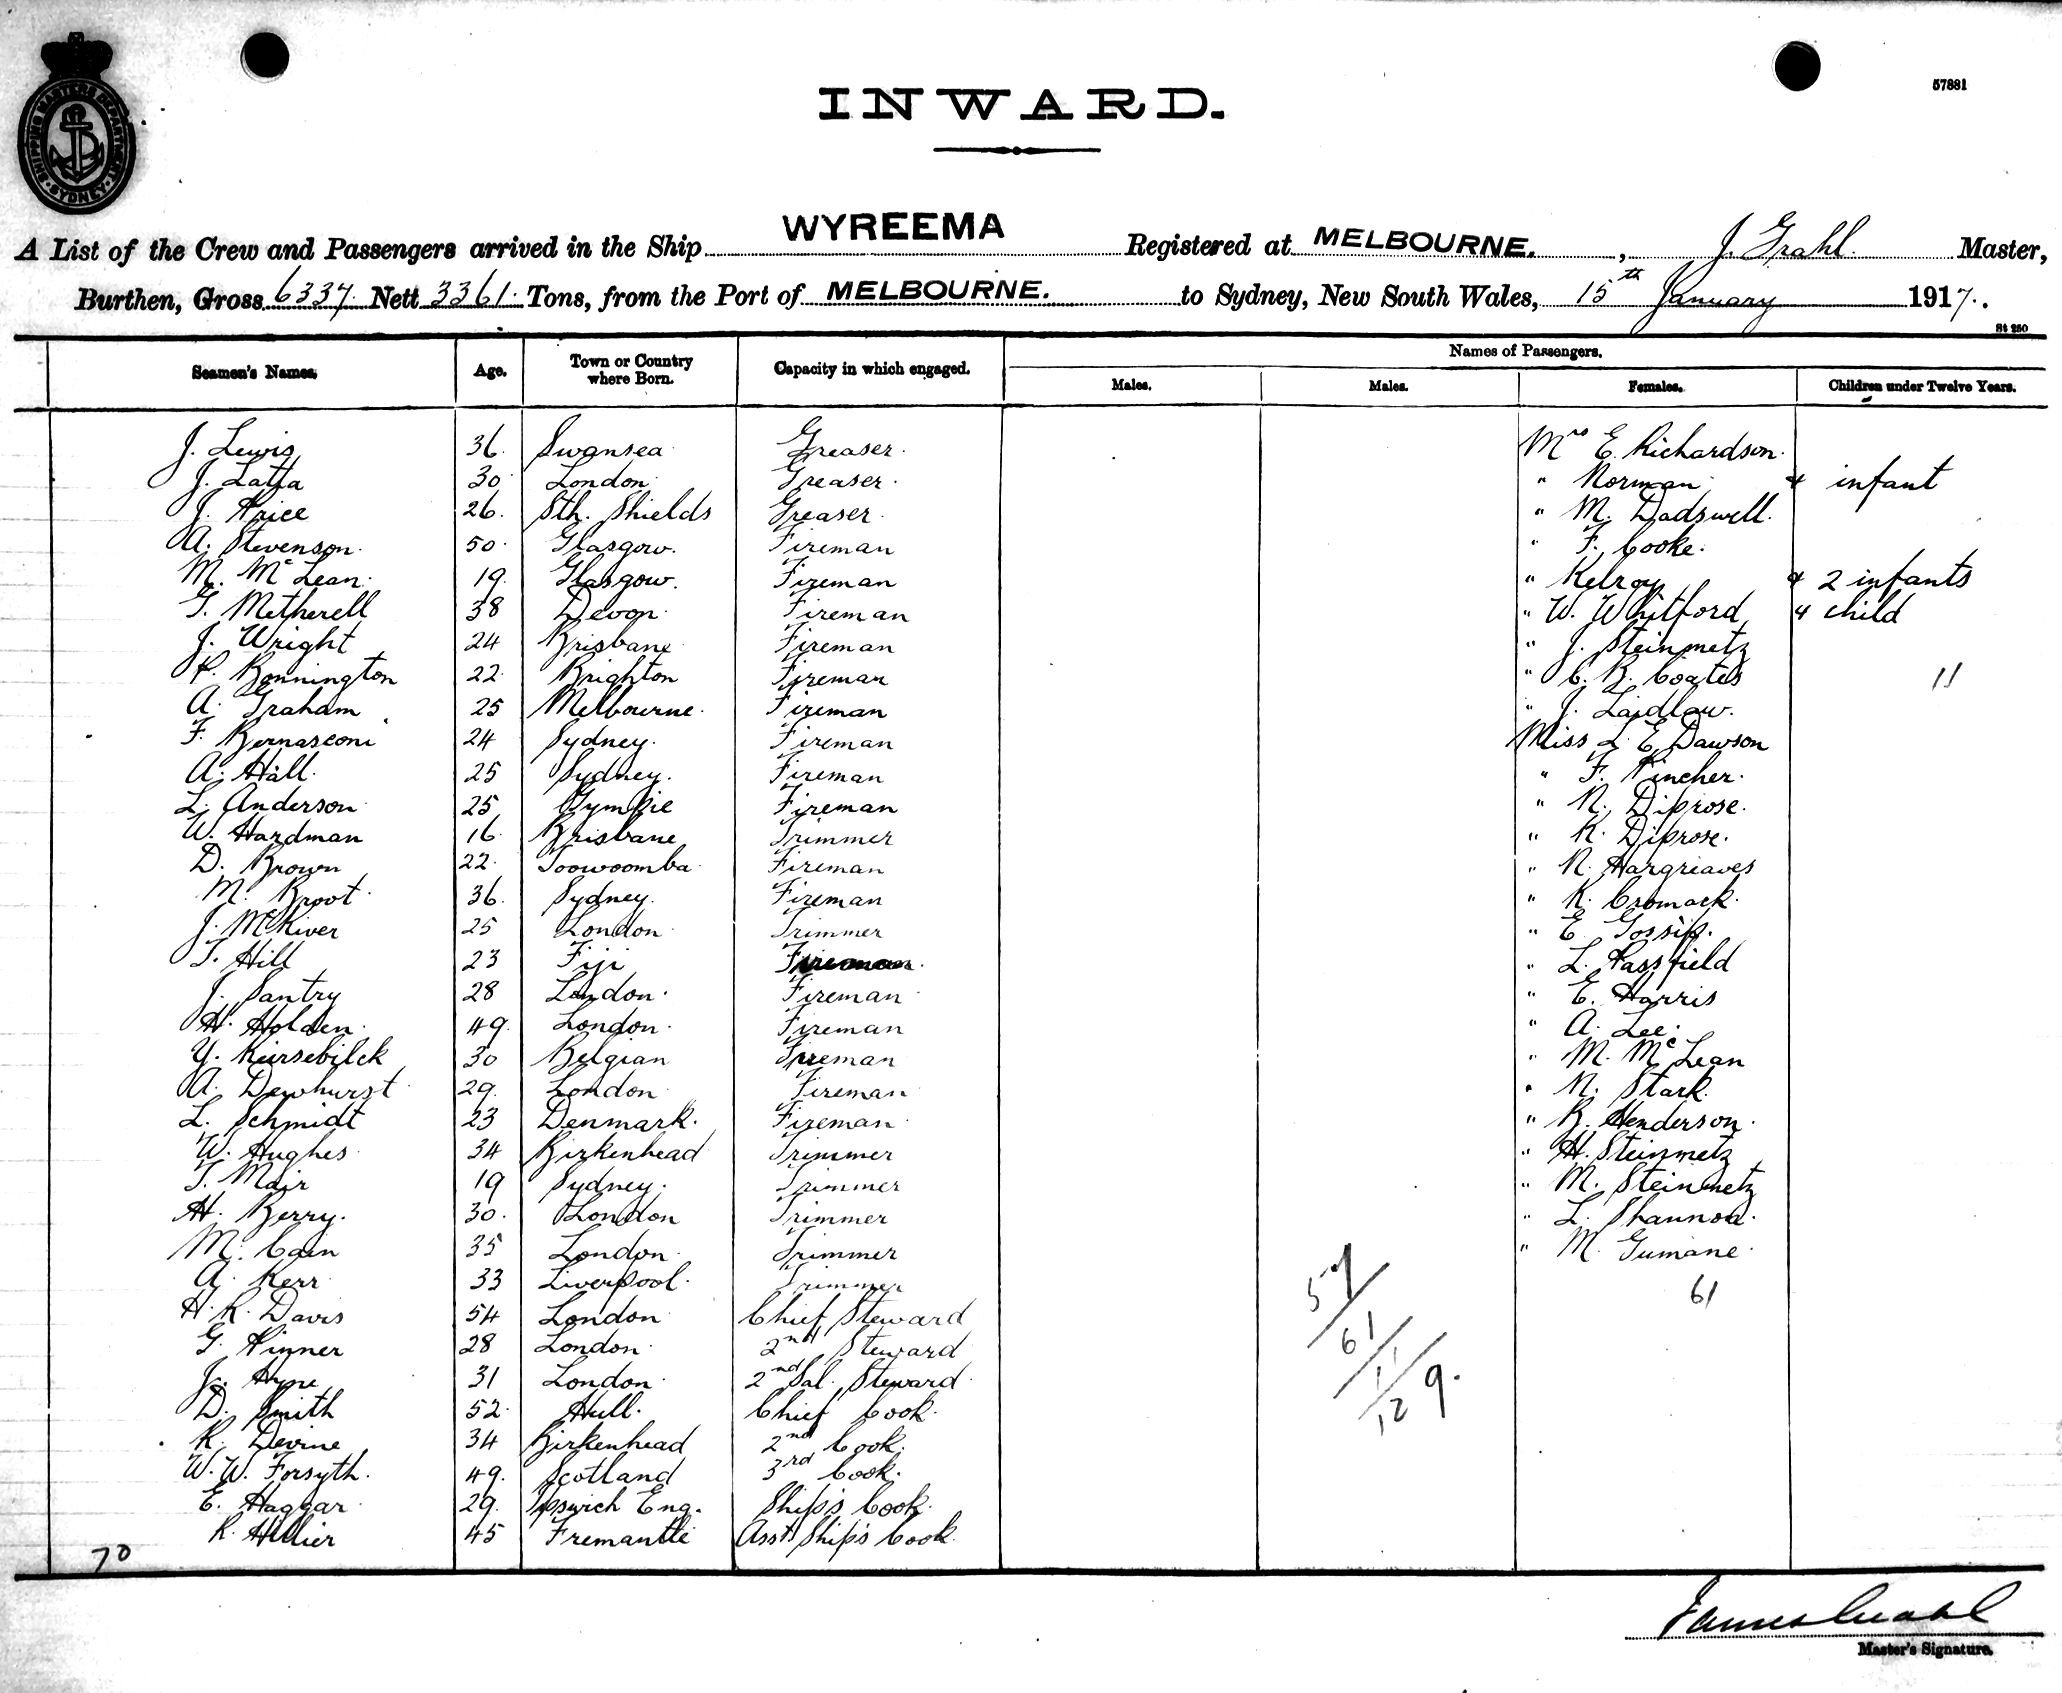 57881
SHIPPING MASTERS DEPARTMENT SYDNEY
INWARD.
A List of the Crew and Passengers arrived in the Ship WYREEMA Registered at MELBOURNE., J. Grahl. Master,
Burthen, Gross 6337 Nett 3361 Tons, from the Port of MELBOURNE. to Sydney, New South Wales, 15th January 1917.
St 250
Seamen's Names. Age. Town or Country where Born. Capacity in which engaged. Names of Passengers.
Males. Males. Females. Children under Twelve Years.
J. Lewis 36 Swansea Greaser. Mrs E. Richardson.
J. Latta 30 London Greaser. " Norman & infant
J. Price 26 Sth. Shields Greaser. " M. Dadswell.
A. Stevenson 50 Glasgow. Fireman " F. Cooke.
M. McLean 19 Glasgow. Fireman " Kelroy & 2 infants
G. Metherell 38 Devon Fireman " W. Whitford & child
J. Wright 24 Brisbane Fireman " J. Steinmetz
P. Bonnington 22 Brighton Fireman " C. B. Coates 11
A. Graham 25 Melbourne. Fireman " J. Laidlaw.
F. Bernasconi 24 Sydney. Fireman Miss L. E. Dawson
A. Hall. 25 Sydney. Fireman " F. Pincher.
L. Anderson 25 Gympie Fireman " N. Diprose.
W. Hardman 16 Brisbane Trimmer " K. Diprose.
D. Brown 22 Toowoomba Fireman " N. Hargreaves
M. Broot 36 Sydney. Fireman " K. Cromack.
J. McKiver 25 London Trimmer " E. Gossip.
T. Hill 23 Fiji Fireman. " L. Passfield
J. Santry 28 London. Fireman " E. Harris
H. Holden. 49 London. Fireman " A. Lee.
Y. Kiersebilck 30 Belgian Fireman " M. McLean
A. Dewhurst 29 London Fireman " N. Stark.
L. Schmidt 23 Denmark. Fireman " B. Henderson.
W. Hughes 34 Birkenhead Trimmer " H. Steinmetz
T. Mair 19 Sydney. Trimmer " M. Steinmetz
H. Berry. 30 London Trimmer " L. Shannon.
M. Cain 35 London Trimmer " M. Gumane.
A. Kerr 33 Liverpool. Trimmer 61
H. R. Davis 54 London Chief Steward 57
G. Pinner 28 London 2nd Steward 61
J. Hyne 31 London 2nd Sal. Steward 11
D. Smith 52 Hull. Chief Cook. 129.
R. Devine 34 Birkenhead 2nd Cook.
W. W. Forsyth. 49 Scotland 3rd Cook.
E. Haggar 29 Ipswich Eng. Ship's Cook.
R. Hillier 45 Fremantle Asst Ship's Cook.
70
James Grahl
Master's Signature.